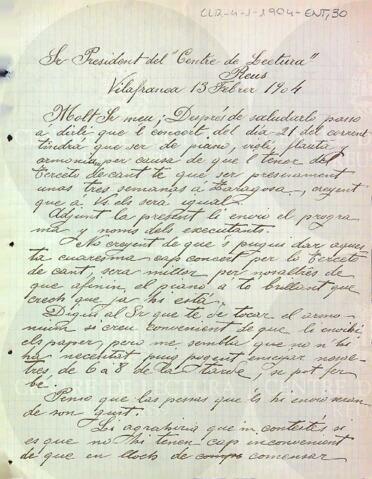 CLR-4-1-1904-ENT,30
Sr President del "Centre de Lectura"
Reus
Vilafranca 13 Febrer 1904
Molt Sr meu; Després de saludarlo passo
a dirli que l concert del dia 21 del corrent
tindrá que ser de piano, violí, flauta y
armonium per causa de que l tenor del
Tercets de cant te que ser presisament
unas tres semanas a Zaragosa, creyent
que a Vs els será igual.
Adjunt la present li envio el progra
ma y noms dels executants.
No creyent de que s pugui dar aques
ta cuaresma cap concert per lo Tercets
de cant, sera millor per nosaltres de
que afinin el piano a to brillant que
crech que ja hi está.
Digui al Sr que te de tocar el armo-
nium si creu convenient de que li envihi
els paper, pero me sembla que no n hi
ha necesitat puig poguent ensayar nosal-
tres, de 6 a 8 de la tarde, se pot fer
be.
Penso que las pessas que hi envio seran
de son gust.
Li agrahiria que m contestés si
es que no hi tenen cap inconvenient
de que en lloch de comensar